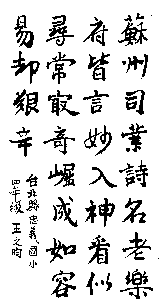 蘇州司業詩名老樂
府皆言妙入神看似
尋常最奇崛成如容
易却艱辛
台北縣忠義國小
四年級 王文昀